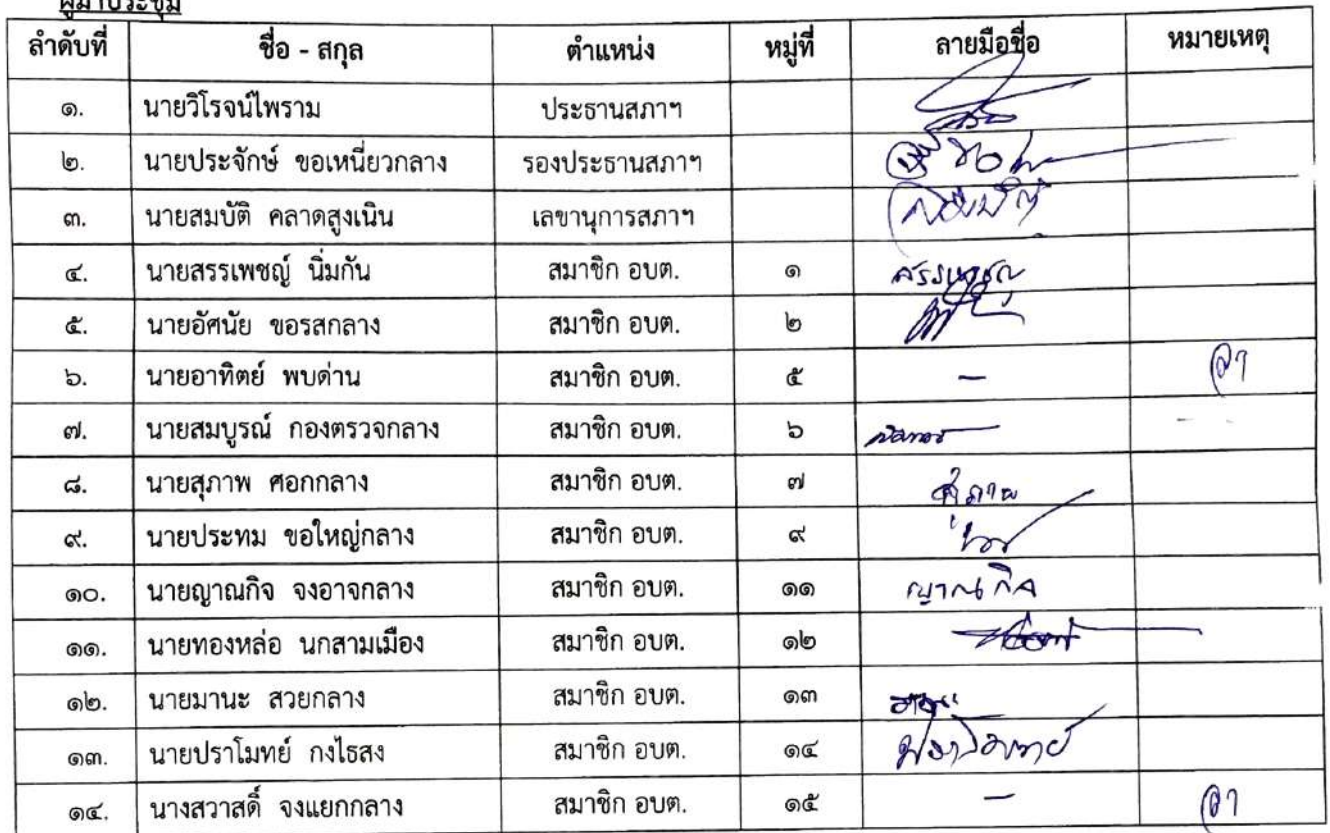 ผู้มาประชุม
ลำดับที่ ชื่อ - สกุล ตำแหน่ง หมู่ที่ ลายมือชื่อ หมายเหตุ
๑. นายวิโรจน์ไพราม ประธานสภาฯ
๒. นายประจักษ์ ขอเหนี่ยวกลาง รองประธานสภาฯ
๓. นายสมบัติ คลาดสูงเนิน เลขานุการสภาฯ
๔. นายสรรเพชญ์ นิ่มกัน สมาชิก อบต. ๑ สรรเพชญ
๕. นายอัศนัย ขอรสกลาง สมาชิก อบต. ๒
๖. นายอาทิตย์ พบด่าน สมาชิก อบต. ๕ – ลา
๗. นายสมบูรณ์ กองตรวจกลาง สมาชิก อบต. ๖
๘. นายสุภาพ ศอกกลาง สมาชิก อบต. ๗ สุภาพ
๙. นายประทม ขอใหญ่กลาง สมาชิก อบต. ๙
๑๐. นายญาณกิจ จงอาจกลาง สมาชิก อบต. ๑๑ ญาณกิจ
๑๑. นายทองหล่อ นกสามเมือง สมาชิก อบต. ๑๒
๑๒. นายมานะ สวยกลาง สมาชิก อบต. ๑๓
๑๓. นายปราโมทย์ กงไธสง สมาชิก อบต. ๑๔ ปราโมทย์
๑๔. นางสวาสดิ์ จงแยกกลาง สมาชิก อบต. ๑๕ – ลา